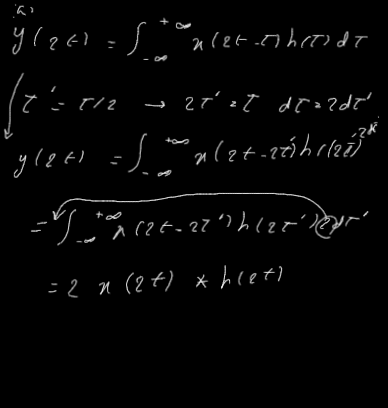 (a)
y(2t) = ∫_{-∞}^{+∞} x(2t-τ)h(τ)dτ
τ' = τ/2 → 2τ' = τ dτ = 2dτ'
y(2t) = ∫_{-∞}^{+∞} x(2t-2τ')h(2τ')2dτ'
= ∫_{-∞}^{+∞} x(2t-2τ')h(2τ')2dτ'
= 2 x(2t) * h(2t)